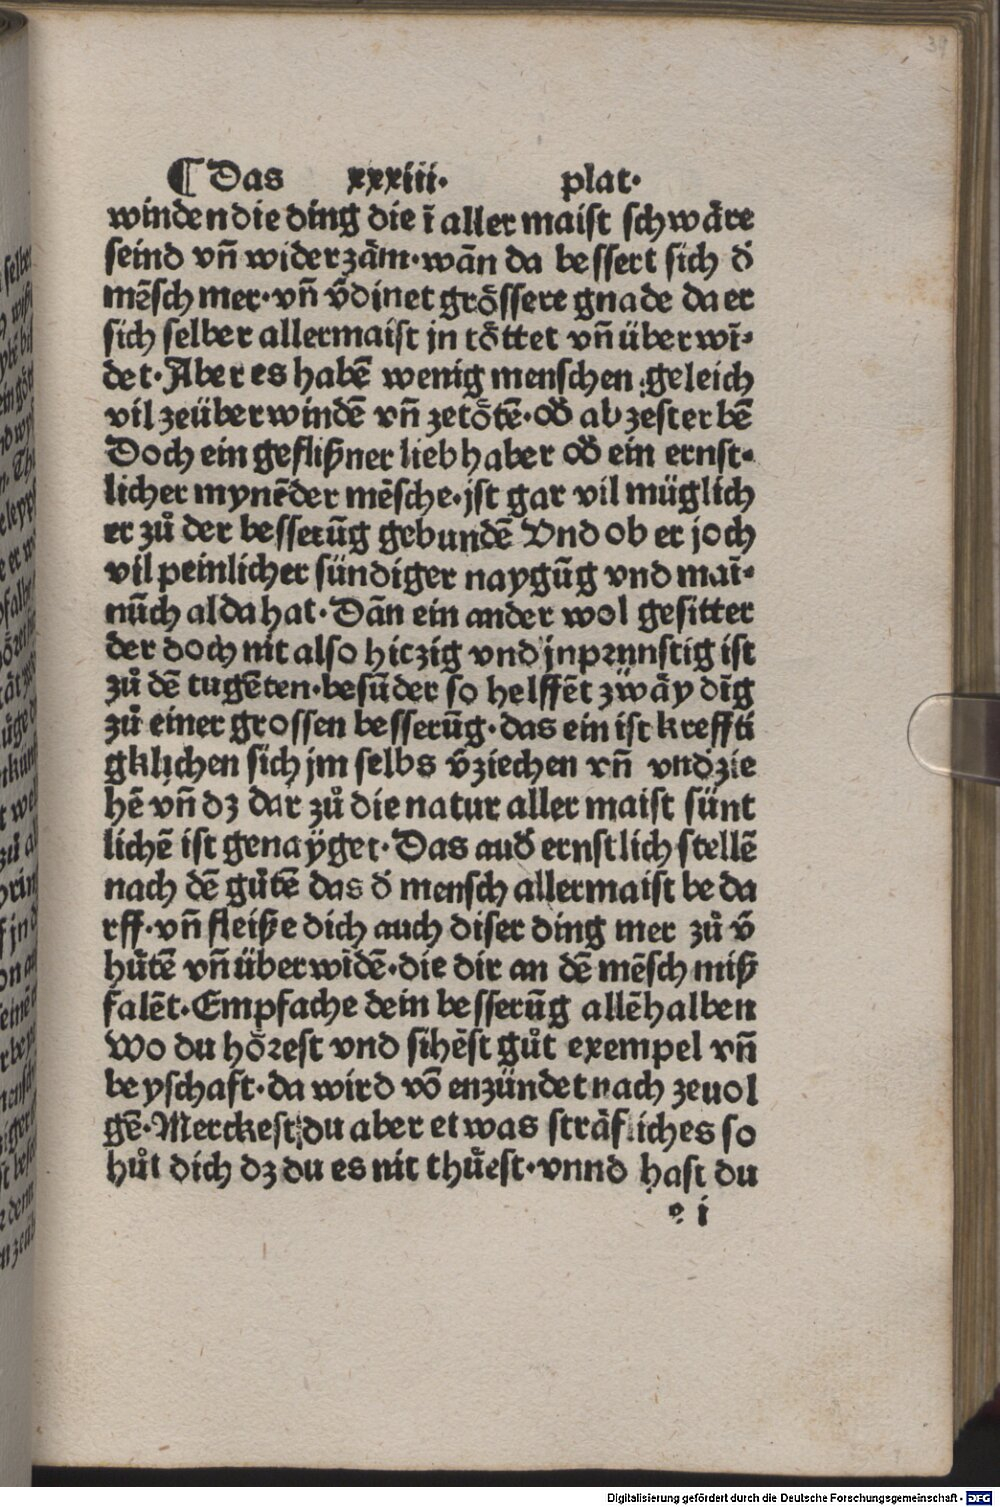 34
¶ Das xxxiii· plat·
winden die ding die ī aller maist schwäre
seind vñ wider zäm·wañ da bessert sich ð
mēsch mer·vñ v̄dinet grössere gnade da er
sich selber allermaist jn töttet vñ über wī⸗
det·Aber es habē wenig menschen geleich
vil zeüberwindē vñ zetötē·oð abzesterbē
Doch ein geflißner liebhaber oð ein ernst⸗
licher mynēder mēsche·jst gar vil müglich
er zů der besserūg gebundē Vnd ob er joch
vil peinlicher sündiger naygūg vnd maī⸗
nūch alda hat·Dañ ein ander wol gesitter
der doch nit also hiczig vnd jnprunstig ist
zů dē tugēten·besūder so helffēt zwäy dīg
zů einer grossen besserūg·das ein ist kreffti
gklichen sich jm selbs v̄ziechen vñ vnd zie
hē vñ dz dar zů die natur aller maist sünt
lichē ist genaÿget·Das auð ernstlich stellē
nach dē gůtē das ð mensch allermaist beda
rff·vñ fleiße dich auch diser ding mer zů v̄
hůtē vñ überwīdē·die dir an dē mēsch miß
falēt·Empfache dein besserūg allēhalben
Wo du hörest vnd sihēst gůt exempel vñ
beyschaft·da wird vō enzündet nach zeuol
gē·Merckest du aber etwas sträfliches so
hůt dich dz du es nit thůest·vnnd hast du
e i
Digitalisierung gefördert durch die Deutsche Forschungsgemeinschaft - DFG